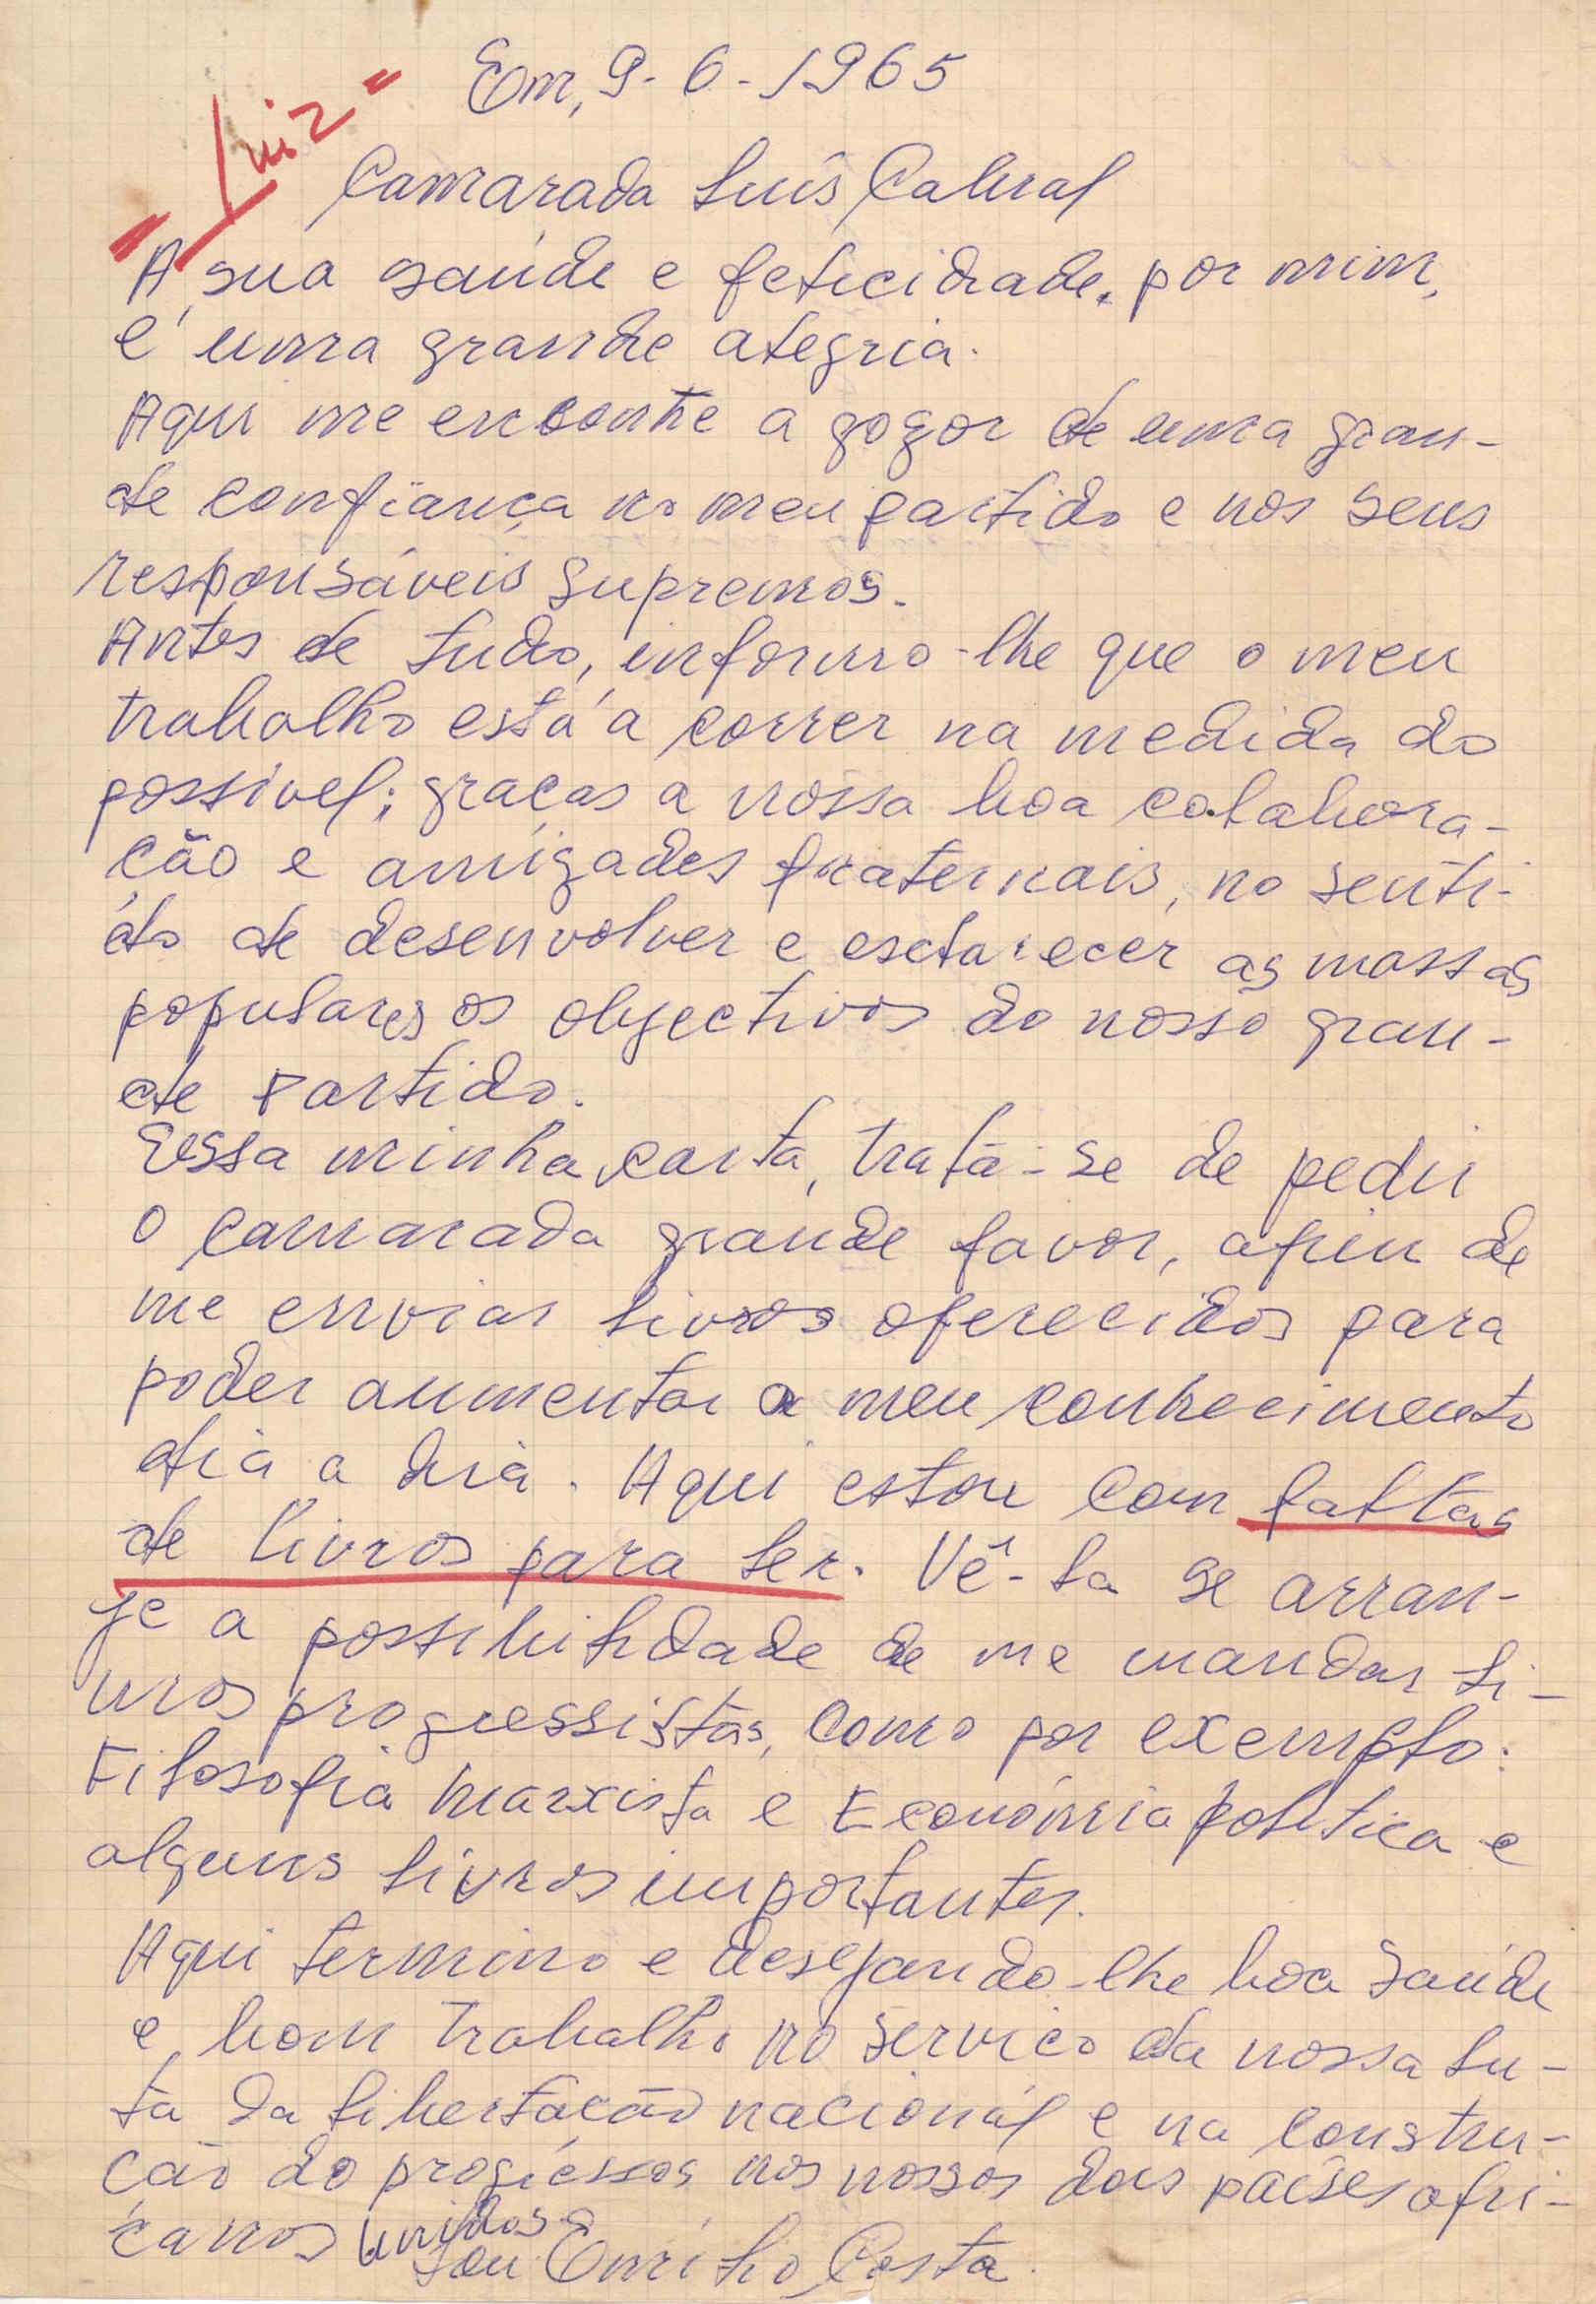 Em, 9-6-1965
"Luiz"
Camarada Luís Cabral
A sua saúde e felicidade, por mim,
é uma grande alegria.
Aqui me encontre a gozar de uma gran-
de confiança no meu partido e nos seus
responsáveis supremos.
Antes de tudo, informo-lhe que o meu
trabalho está a correr na medida do
possível; graças a nossa boa colabora-
ção e amizades fraternais, no senti-
do de desenvolver e esclarecer as massas
populares os objectivos do nosso gran-
de Partido.
Essa minha carta, trata-se de pedir
o camarada grande favor, afim de
me enviar livros oferecidos para
poder aumentar o meu conhecimento
dia a dia. Aqui estou com faltas
de livros para ler. Vê-la se arran-
je a possibilidade de me mandar li-
vros progressistas, como por exemplo:
Filosofia marxista e Económia política e
alguns livros importantes.
Aqui termino e desejando-lhe boa saúde
e bom trabalho no serviço da nossa lu-
ta da libertação nacional e na constru-
ção do progressos nos nossos dois países afri-
canos unidos.
Sou Emílio Costa.